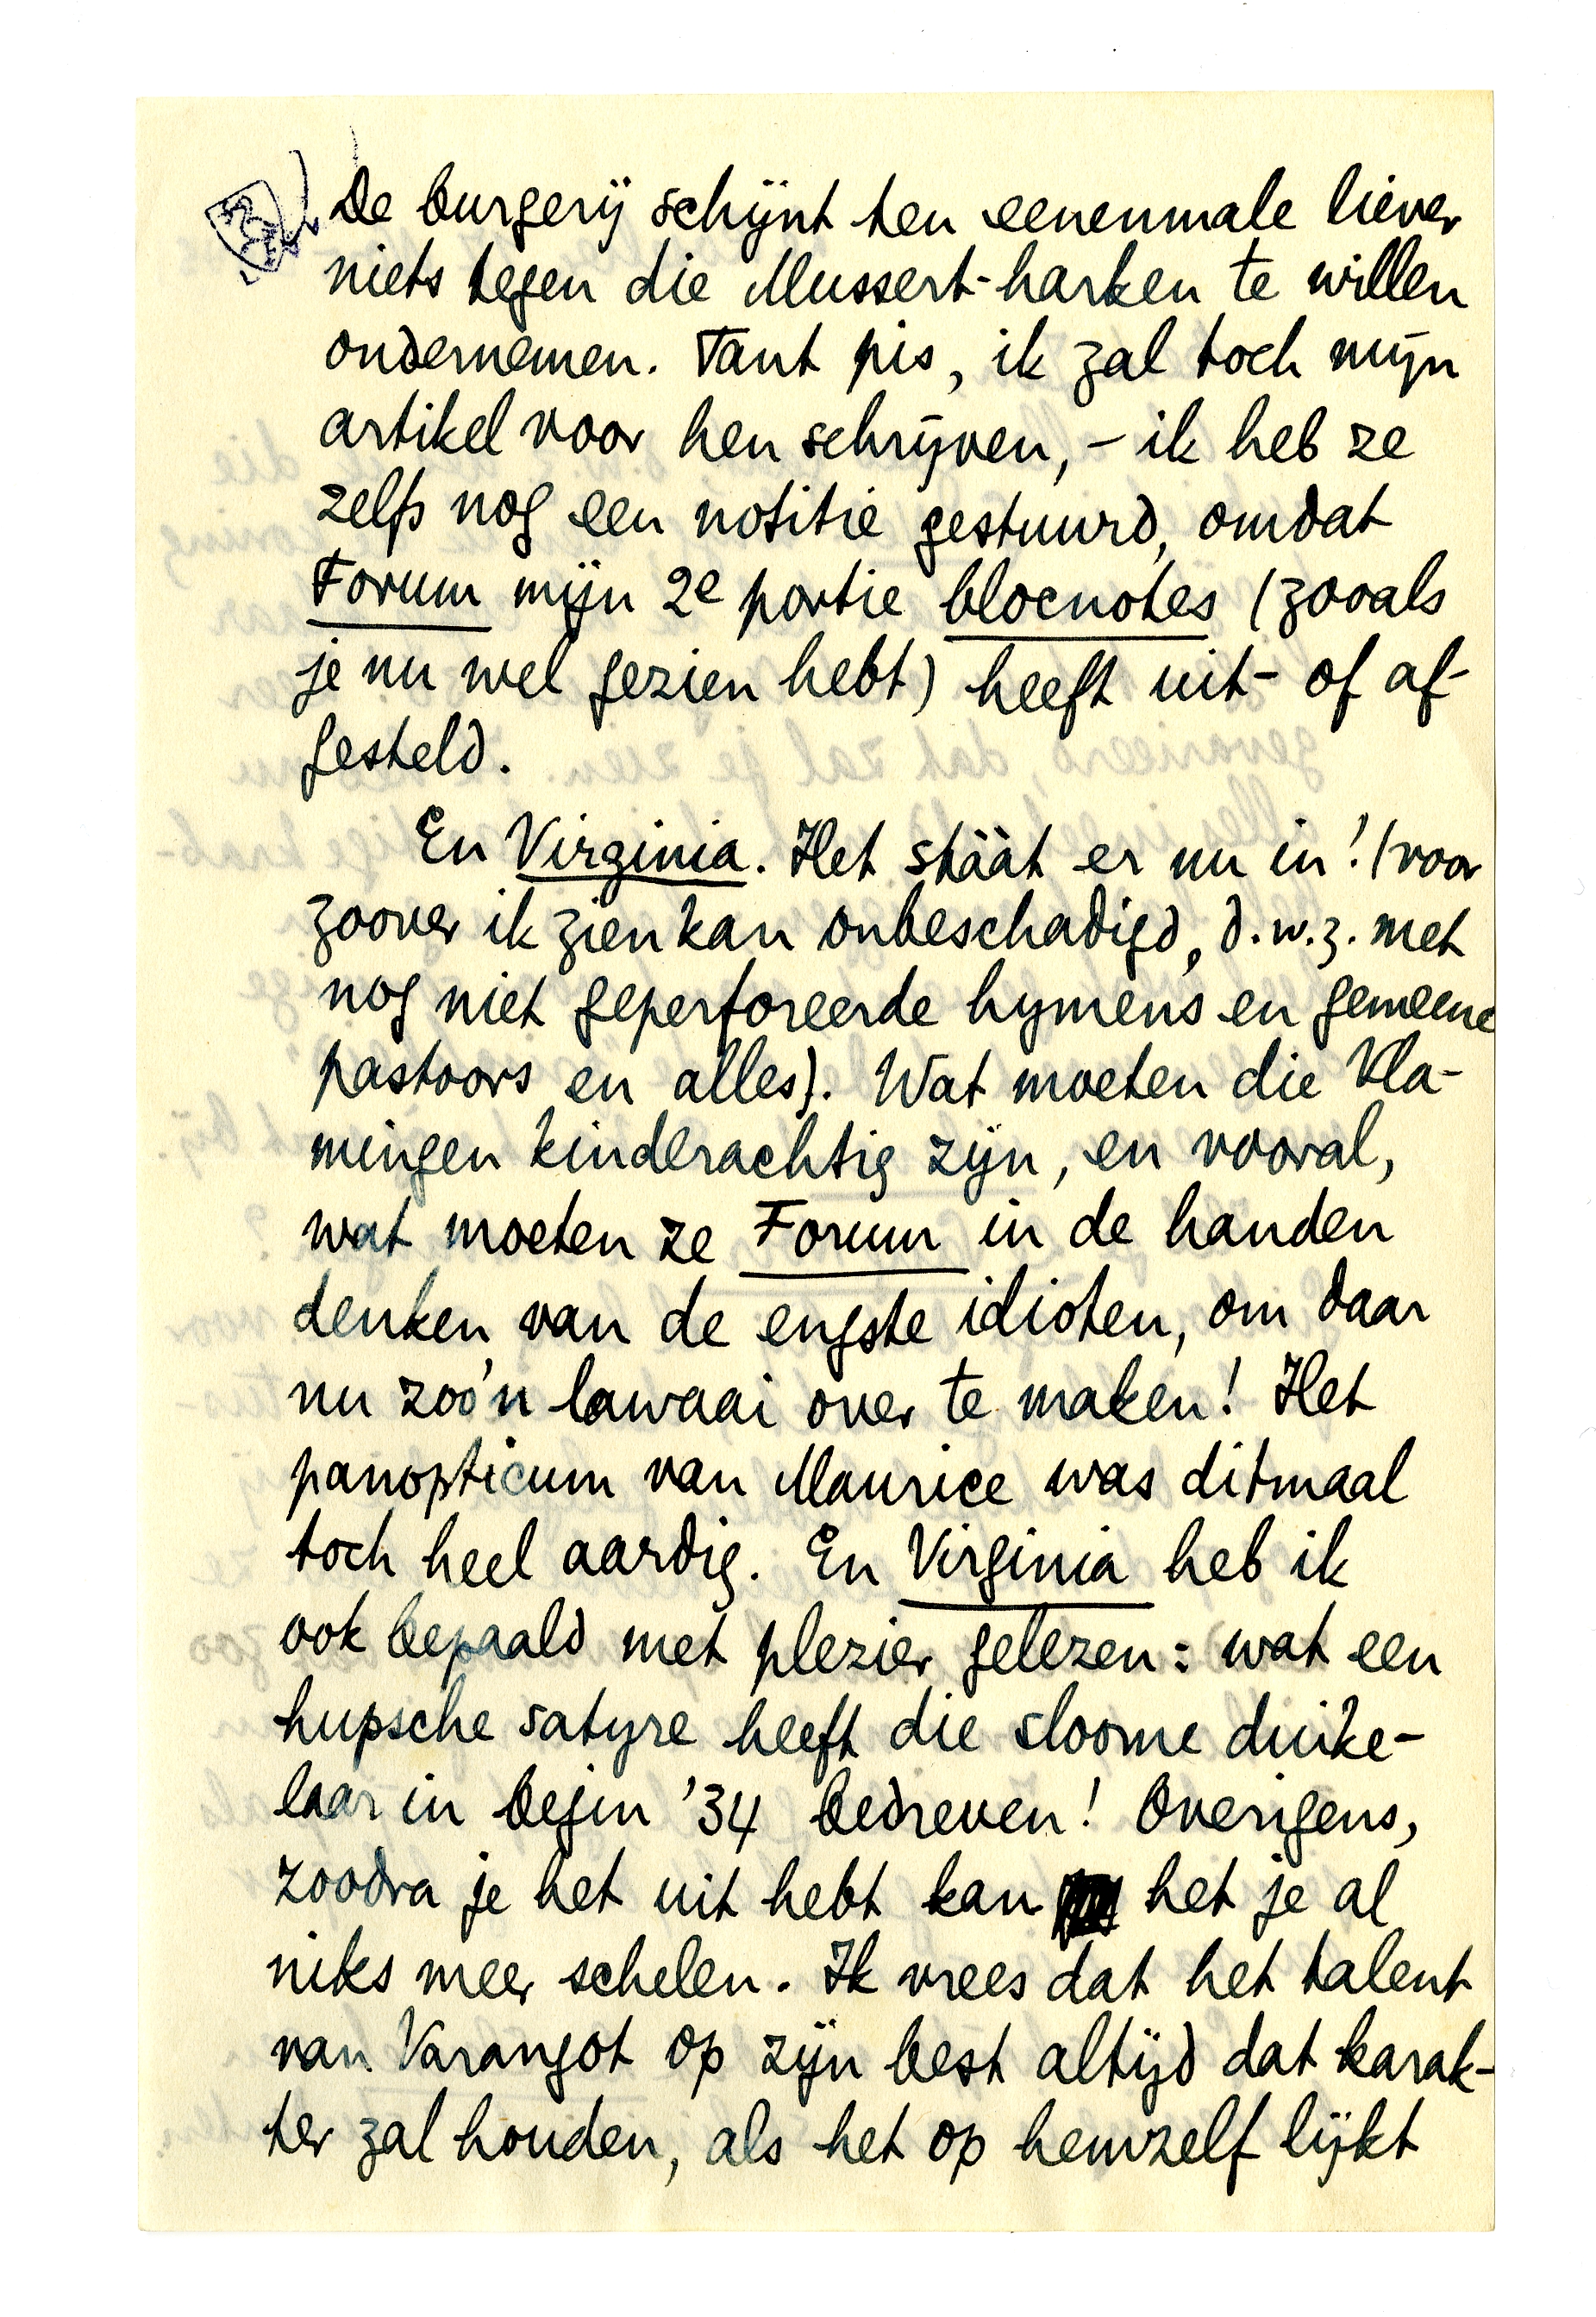 De burgerij schijnt ten eenenmale liever
niets tegen die Mussert-harken te willen
ondernemen. Tant pis, ik zal toch mijn
artikel voor hen schrijven, - ik heb ze
zelfs nog een notitie gestuurd, omdat
Forum mijn 2e portie blocnotes (zooals
je nu wel gezien hebt) heeft uit- of af-
gesteld.
En Virginia. Het stààt er nu in! (voor
zoover ik zien kan onbeschadigd, d.w.z. met
nog niet geperforeerde hymens en gemeene
pastoors en alles). Wat moeten die Vla-
mingen kinderachtig zijn, en vooral,
wat moeten ze Forum in de handen
denken van de engste idioten, om daar
nu zoo'n lawaai over te maken! Het
panopticum van Maurice was ditmaal
toch heel aardig. En Virginia heb ik
ook bepaald met plezier gelezen: wat een
hupsche satyre heeft die sloome duike-
laar in begin '34 bedreven! Overigens,
zoodra je het uit hebt kan het je al
niks meer schelen. Ik vrees dat het talent
van Varangot op zijn best altijd dat karak-
ter zal houden, als het op hemzelf lijkt